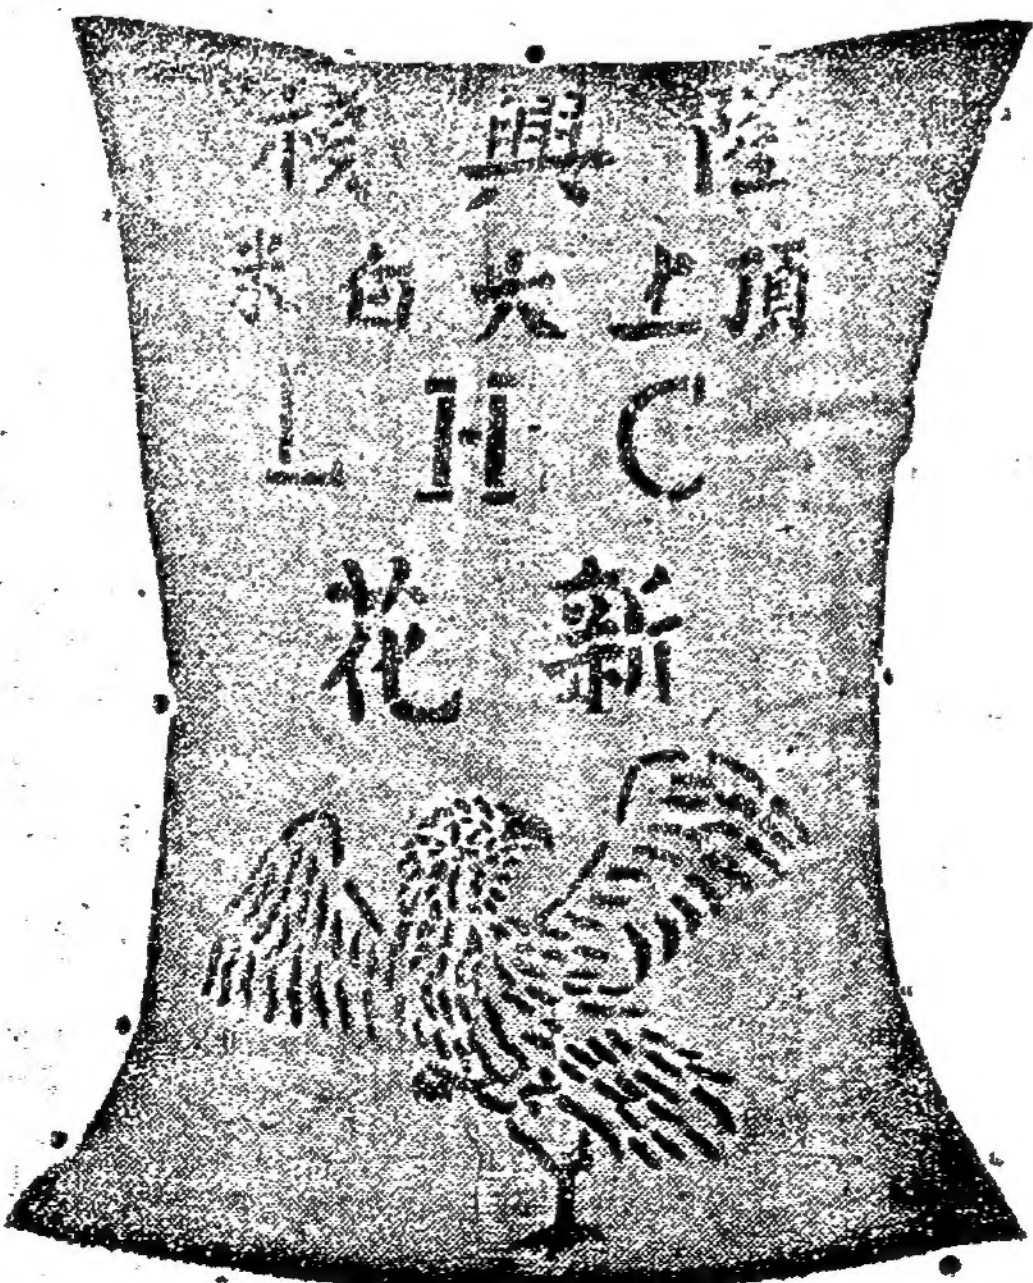 隆興棧
頂上大白
L H C
新花